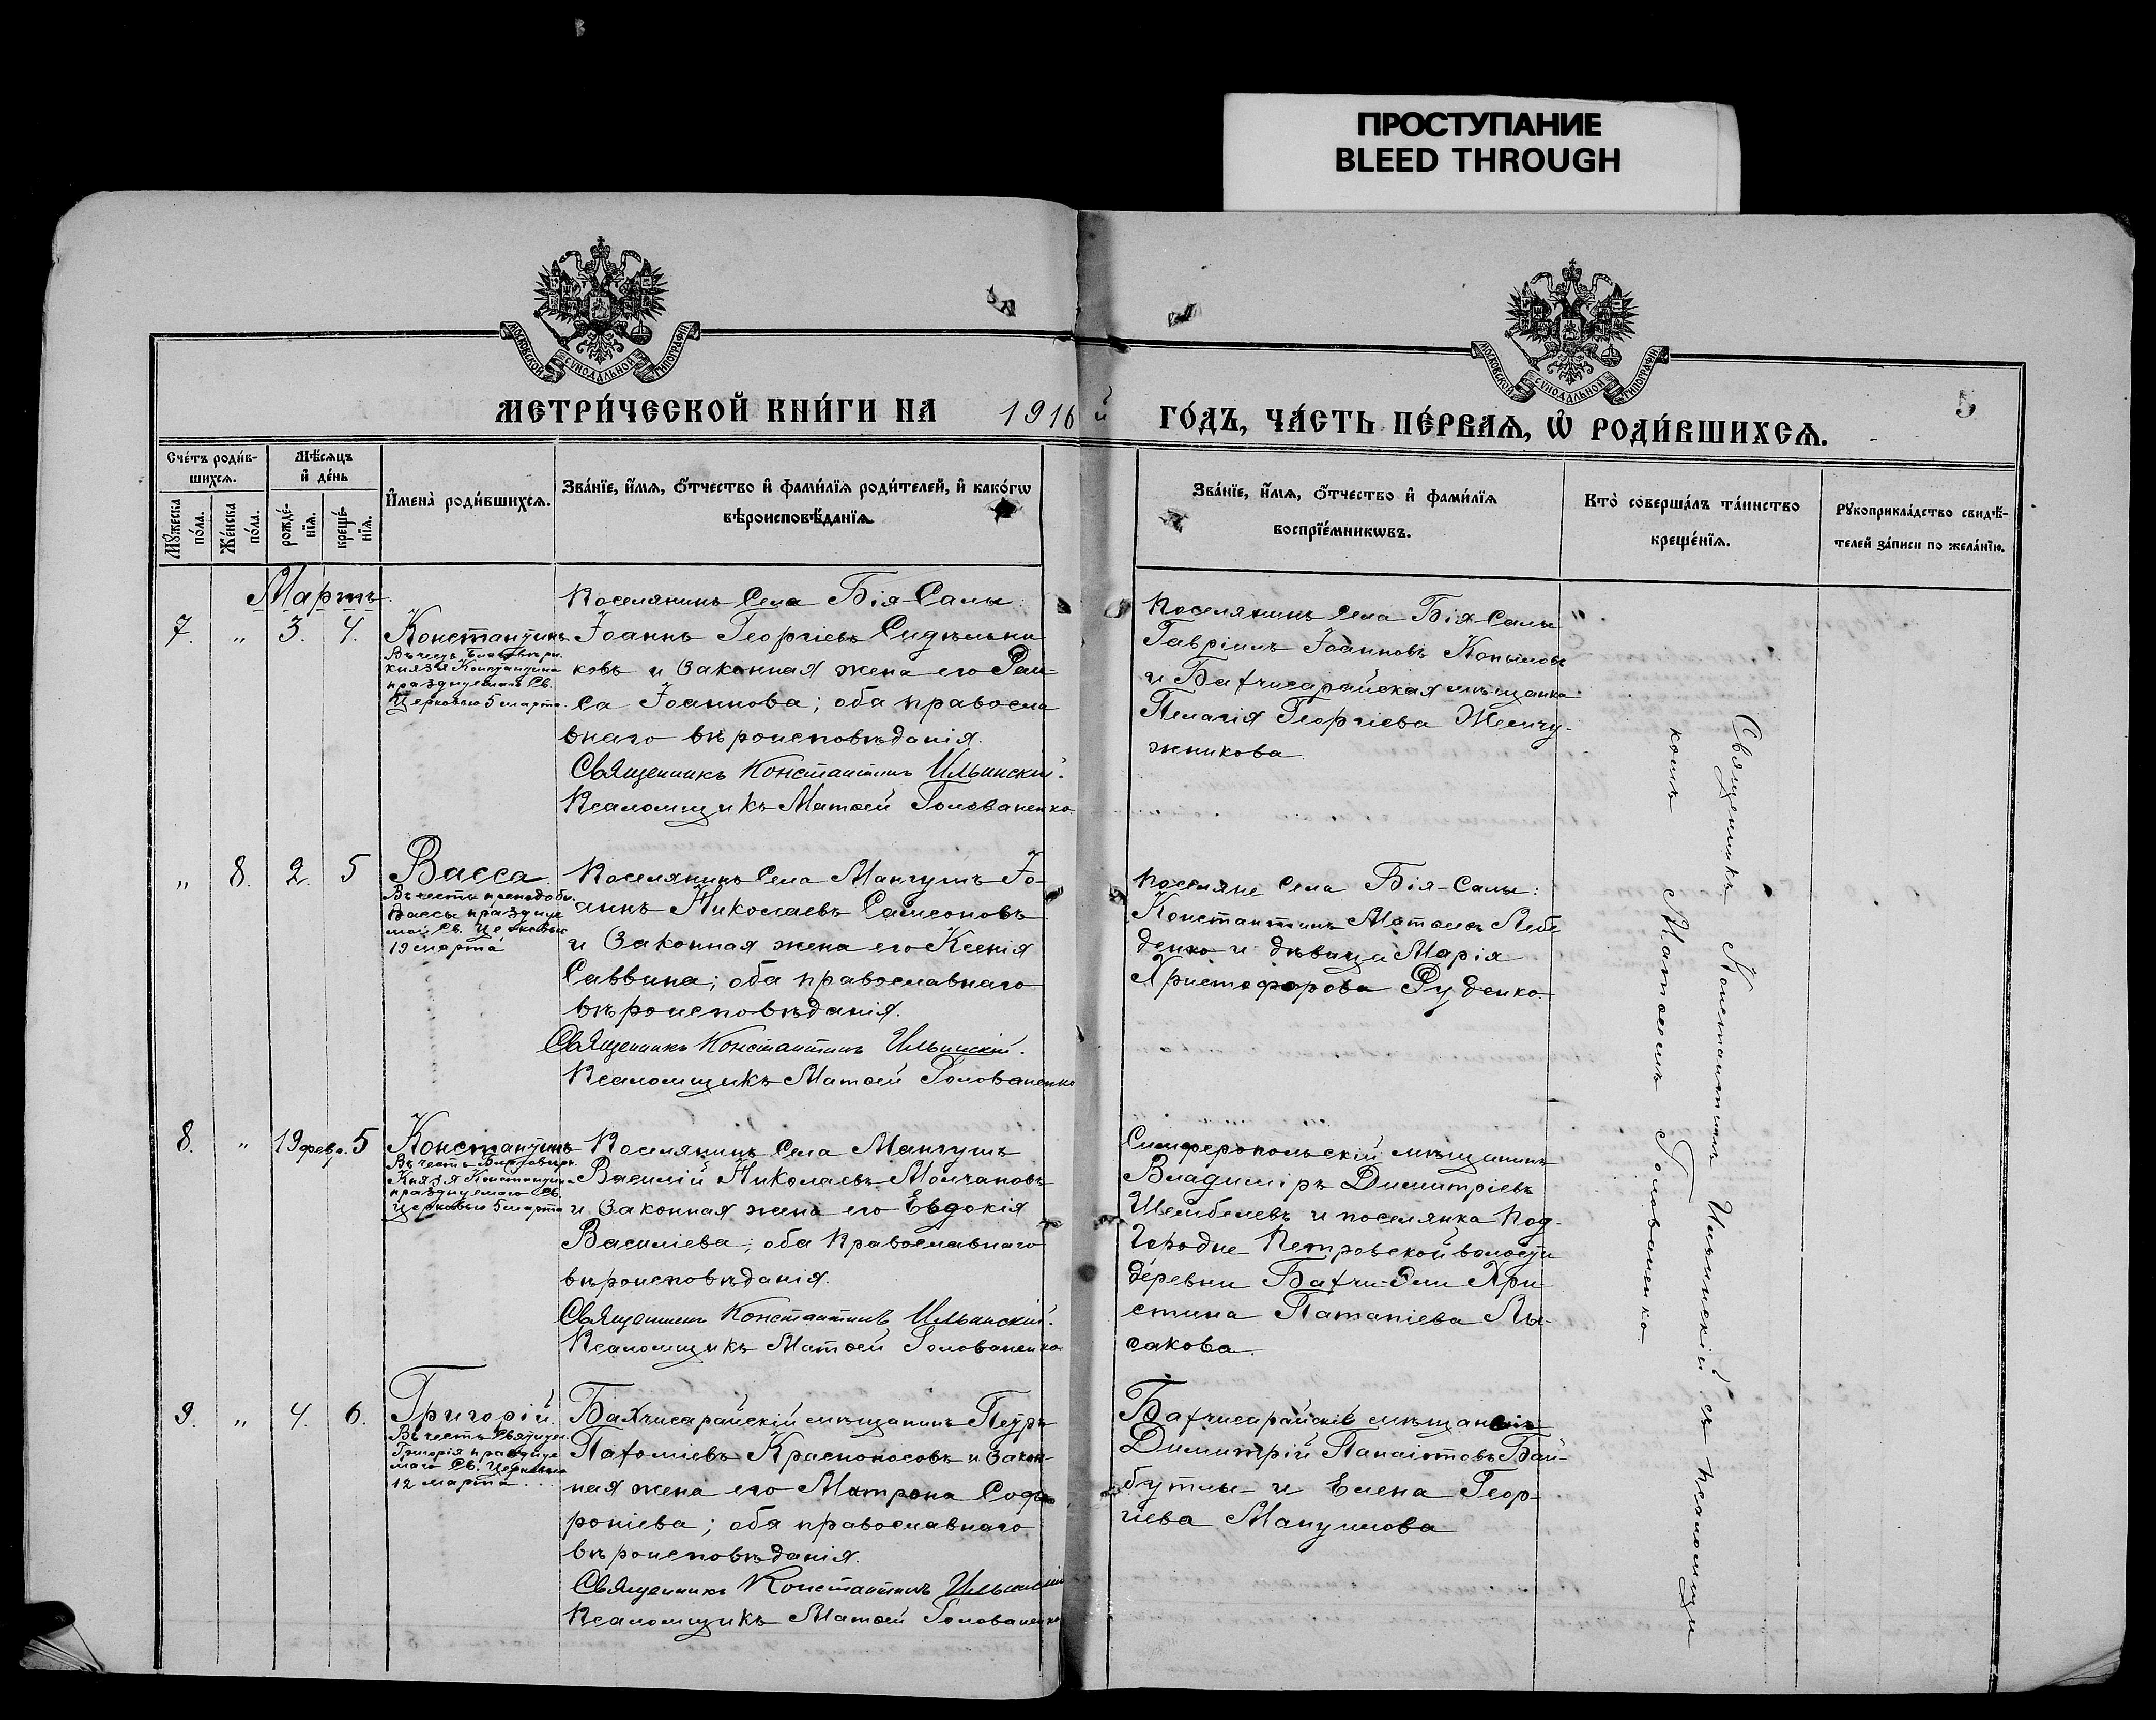 ПРОСТУПАНИЕ
BLEED THROUGH
МОСКОВСКОЙ СѴНОДАЛЬНОЙ ТИПОГРАФІИ
МОСКОВСКОЙ СѴНОДАЛЬНОЙ ТИПОГРАФІИ
5
МЕТРИ́ЧЕСКОЙ КНИ́ГИ НА 1916 й ГО́ДЪ, ЧА́СТЬ ПЕ́РВАѦ, Ѡ҆ РОДИ́ВШИХСѦ.
Сче́тъ роди́в-
шихсѧ.
Мꙋ́жеска по́ла.
Же́нска по́ла.
Мѣ́сѧцъ
и҆ де́нь
рожде́-нїѧ.
креще́-нїѧ.
И҆мена̀ роди́вшихсѧ.
Зва́нїе, и҆́мѧ, ѻ҆́тчество и҆ фами́лїѧ роди́телей, и҆ како́гѡ
вѣроисповѣ́данїѧ.
Зва́нїе, и҆́мѧ, ѻ҆́тчество и҆ фами́лїѧ
воспрїе́мникѡвъ.
Кто̀ соверша́лъ та́инство
креще́нїѧ.
Рꙋкоприкла́дство свидѣ́-
телей за́писи по жела́нїю.
Мартъ.
7. „ 3. 4.
Константинъ
Въ честь Благовѣрн.
князя Константина
празднуемаго Св.
Церковью 5 марта.
Поселянинъ Села Бія-Салы:
Іоаннъ Георгіевъ Сидѣльни
ковъ и законная жена его Раи-
са Іоаннова; оба правосла
внаго вѣроисповѣданія.
Священникъ Константинъ Ильинскій.
Псаломщикъ Матѳей Голованенко.
Поселянинъ Села Бія-Салы
Гавріилъ Іоанновъ Копыловъ
и Бахчисарайская мѣщанка
Пелагія Георгіева Жемчу-
жникова.
„ 8. 2. 5
Васса.
Въ честь преподобн.
Вассы праздnуе
мой Св. Церковью
19 марта
Поселянинъ Села Мангушъ Іо-
аннъ Николаевъ Самсоновъ
и законная жена его Ксенія
Саввина; оба православнаго
вѣроисповѣданія.
Священникъ Константинъ Ильинскій.
Псаломщикъ Матѳей Голованенко
Поселяне Села Бія-Салы:
Константинъ Матѳеевъ Лебе
денко и дѣвица Марія
Христофорова Руденко.
8. „ 19 февр. 5
Константинъ
Въ честь Благовѣрн.
Князя Константина
празднуемаго Св.
Церковью 5 марта
Поселянинъ Села Мангушъ
Василій Николаевъ Молчановъ
и законная жена его Евдокія
Василіева; оба православнаго
вѣроисповѣданія.
Священникъ Константинъ Ильинскій.
Псаломщикъ Матѳей Голованенко
Симферопольскій мѣщанинъ
Владиміръ Димитріевъ
и поселянка Под-
городне Петровской волости
деревни Бахчи-Эли Хри
стина Патапіева Лы-
сакова.
9. „ 4. 6.
Григорій.
Въ честь Святител.
Григорія празднуе
маго Св. Церковью
12 марта
Бахчисарайскій мѣщанинъ Петръ
Пахоміевъ Красноносовъ и закон-
ная жена его Матрона Соф
роніева; оба православнаго
вѣроисповѣданія.
Священникъ Константинъ Ильинскій
Псаломщикъ Матѳей Голованенко
Бахчисарайскіе мѣщане
Димитрій Панаіотовъ Бай-
бутлы и Елена Геор-
гіева Мапунова
Священникъ Константинъ Ильинскій съ псаломщи
комъ Матѳеемъ Голованенко